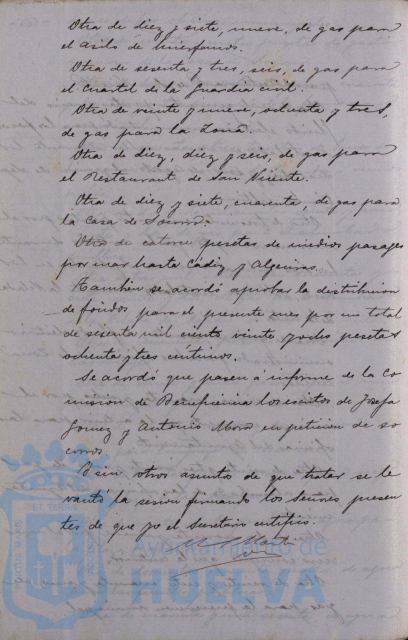 Otra de diez y siete, nueve, de gas para
el Asilo de huerfanos.
Otra de sesenta y tres, seis, de gas para
el Cuartel de la Guardia civil.
Otra de veinte y nueve, ochenta y tres,
de gas para la Zona.
Otra de diez, diez y seis, de gas para
el Restaurant de San Vicente.
Otra de diez y siete, cuarenta, de gas para
la Casa de Socorro.
Otra de catorce pesetas de medios pasajes
por mar hasta Cádiz y Algeciras.
También se acordó aprobar la distribucion
de fondos para el presente mes por un total
de sesenta mil ciento veinte y ocho pesetas
ochenta y tres centimos.
Se acordó que pasen á informe de la Co
mision de Beneficencia los escritos de Josefa
Gomez y Antonio Mora en peticion de so
corros.
Y sin otros asunto de que tratar se le
vantó la sesion firmando los Señores presen
tes de que yo el Secretario certifico.
Ayuntamiento de
HUELVA